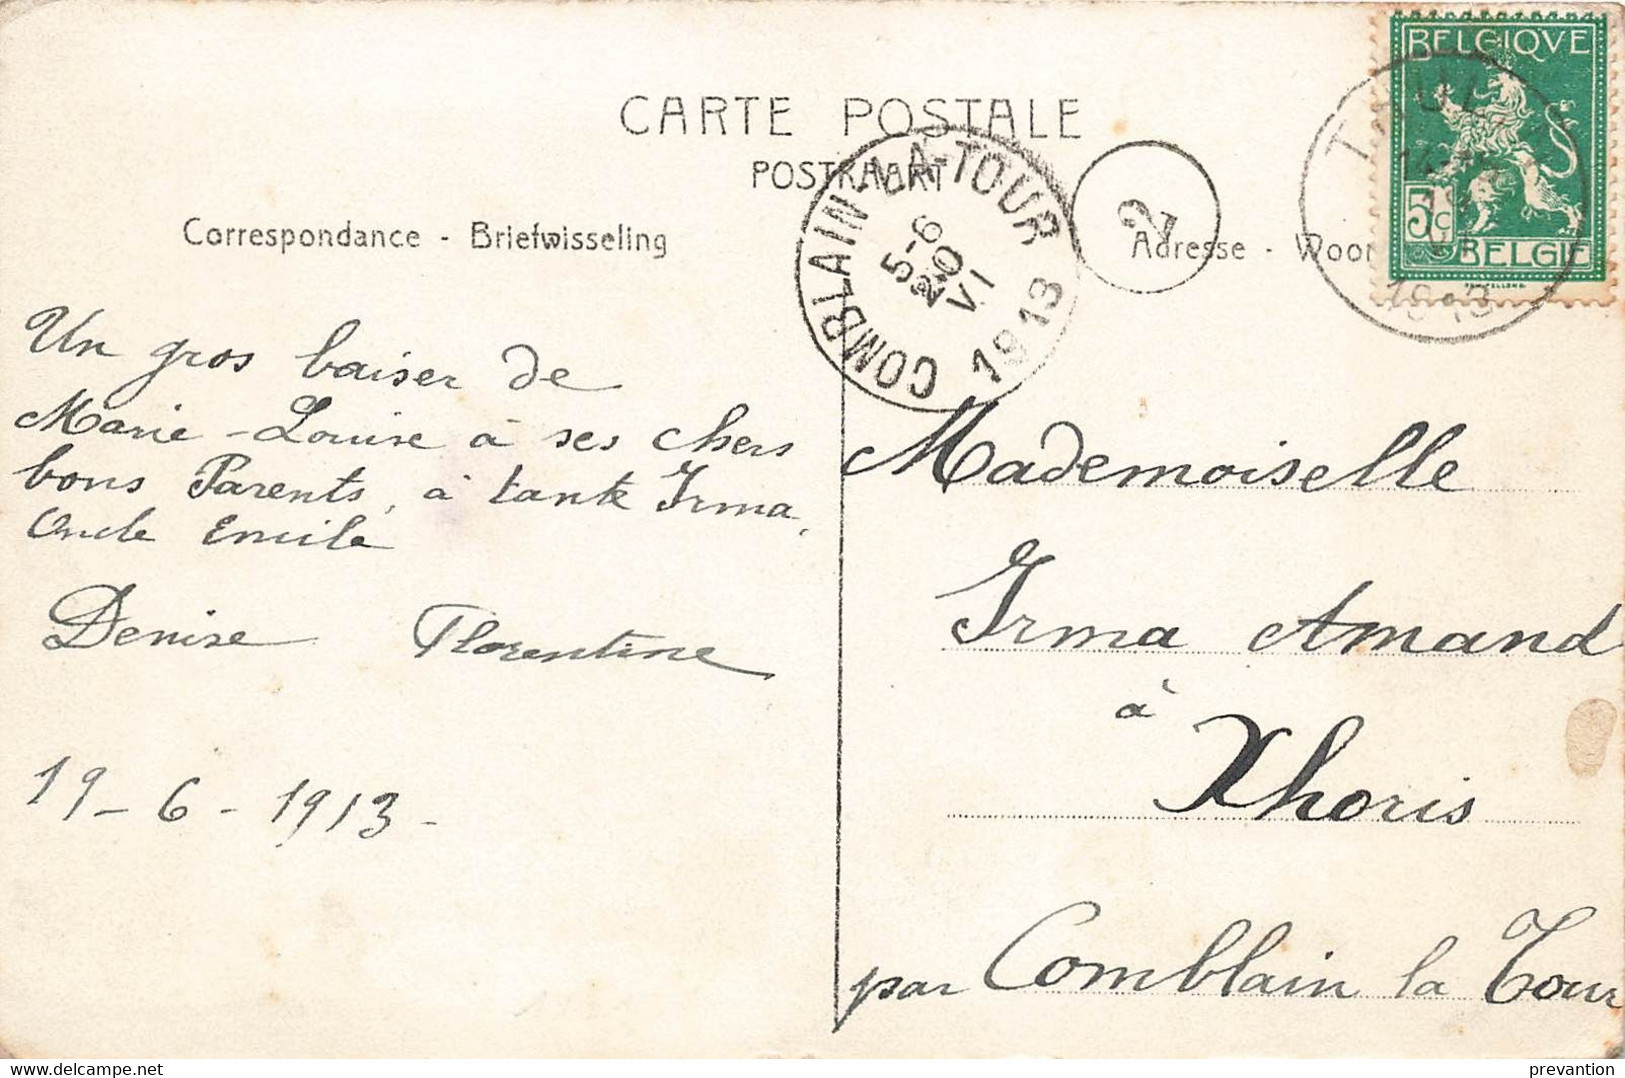 CARTE POSTALE
POSTKAART
Correspondance - Briefwisseling
Adresse - Woon
BELGIQUE
5 c
BELGIË
COMBLAIN-LA-TOUR
5-6
20
VI
1913
2
1913
Un gros baiser de
Marie-Louise à ses chers
bons Parents, à tante Irma,
Oncle Emile
Denise Florentine
19-6-1913-
Mademoiselle
Irma Amand
à
Xhoris
par Comblain la Tour
delcampe.net
prevantion